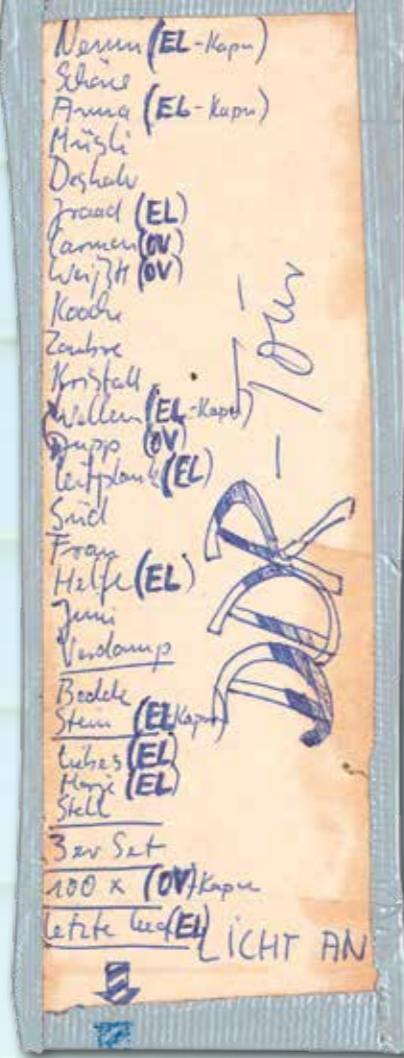 Nemm (EL-Kapu)
Schöne
Anna (EL-Kapu)
Müsli
Deshalv
Jraad (EL)
Carmen (OV)
Weißte (OV)
Zaubre
Kristall
Wellen (EL-Kapu)
Jupp (OV)
Leitplank (EL)
Süd
Frau
Helfe (EL)
Juni
Verdamp
Stein (EL Kapu)
(EL)
(EL)
Stell
3er Set
100 x (OV) Kapu
Letzte Leed (EL)
LICHT AN
DDR - Tour